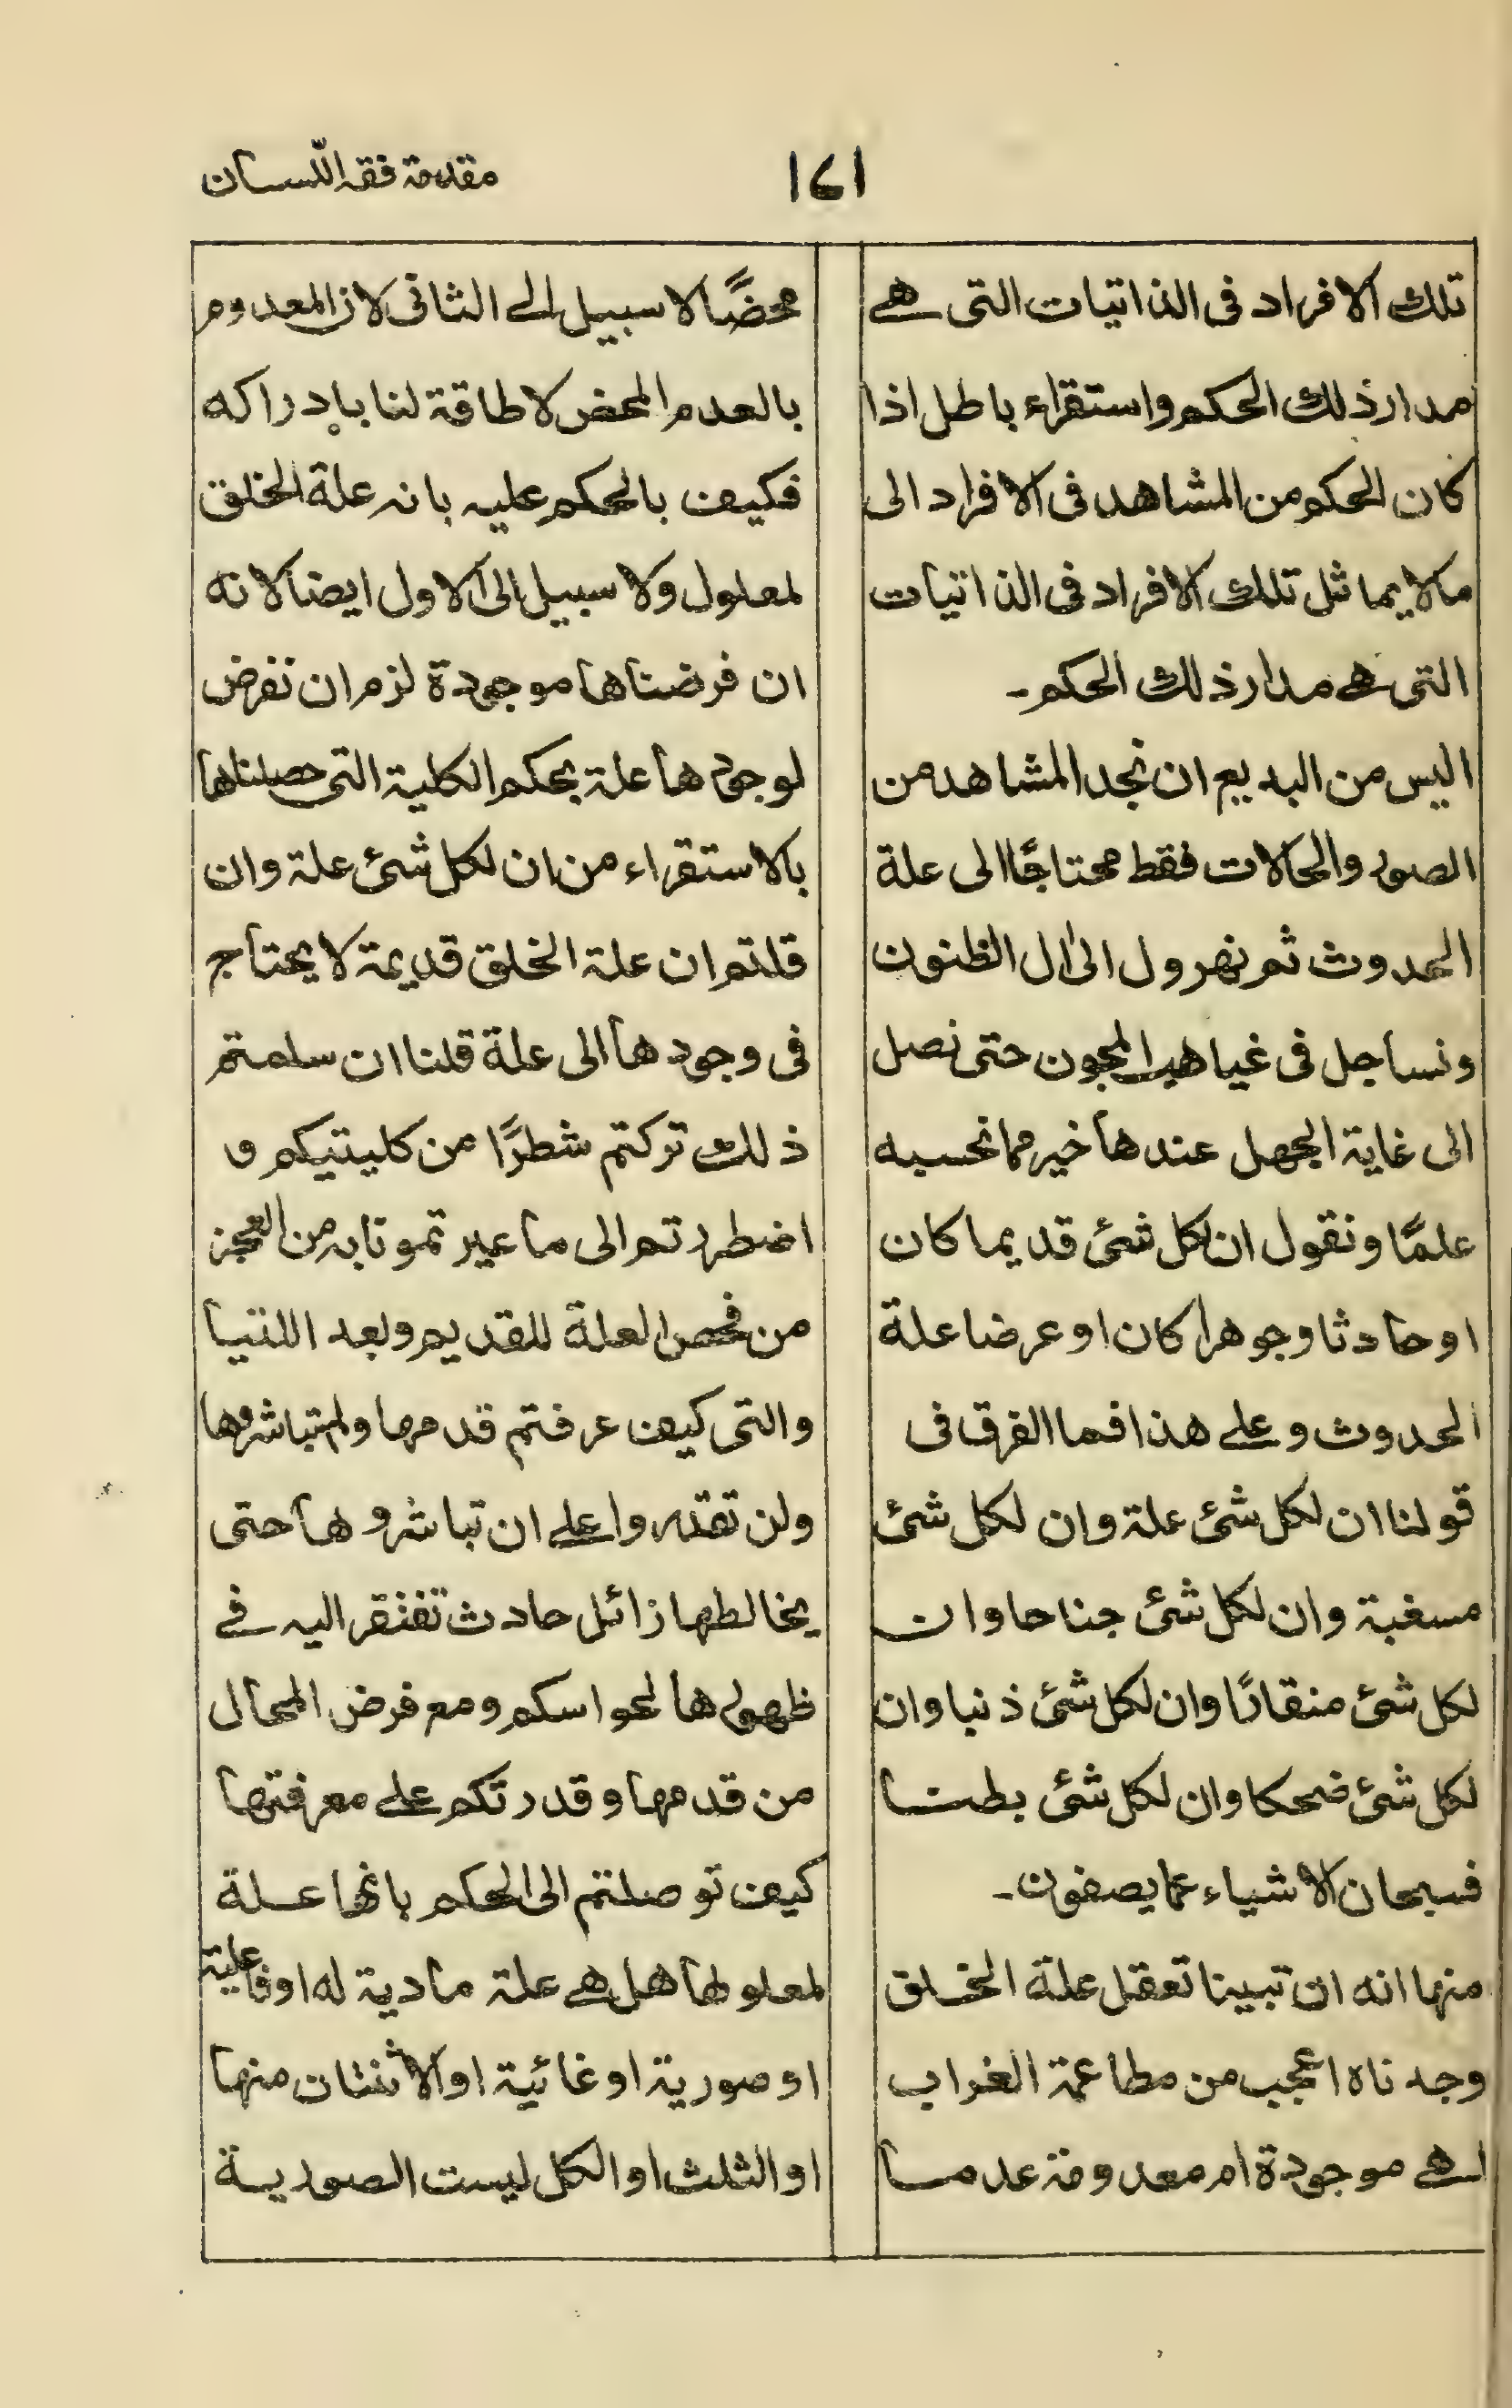 مقدمة فقہ اللّسان
١٤١
تلك الافراد فى الذاتيات التى هے
مدار ذلك الحكم واستقراء باطل اذا
كان الحكم من المشاهد فى الافراد الى
مالا يماثل تلك الافراد فى الذاتيات
التى هے مدار ذلك الحكم۔
اليس من البديع ان نجد المشاهد من
الصور والحالات فقط محتاجًا الى علة
الحدوث ثم نهرول الى ال الظنون
ونساجل فى غياهب المجون حتى نصل
الى غاية الجهل عندها خير مما نحسبه
علمًا ونقول ان لكل شئ قديما كان
او حادثا وجوهرا كان او عرضا علة
الحدوث وعلے هذا فما الفرق فى
قولنا ان لكل شئ علة وان لكل شئ
مسغبة وان لكل شئ جناحا وان
لكل شئ منقارًا وان لكل شئ ذنبا وان
لكل شئ ضحكا وان لكل شئ بطنا
فسبحان الاشياء عما يصفون۔
منها انه ان تبينا تعقل علة الخلق
وجدناه اعجب من مطاعمة الغراب
اهے موجودة ام معدومة عدما
محضًا لا سبيل الے الثانى لان المعدوم
بالعدم المحض لا طاقة لنا بادراكه
فكيف بالحكم عليہ بانہ علة الخلق
لمعلول ولا سبيل الى الاول ايضا لانه
ان فرضناها موجودة لزم ان نفرض
لوجودها علة بحكم الكلية التى حصلناها
بالاستقراء من ان لكل شئ علة وان
قلتم ان علة الخلق قديمة لا يحتاج
فى وجودها الى علة قلنا ان سلمتم
ذلك تركتم شطرًا من كليتيكم و
اضطررتم الى ما عيرتمونا بہ من العجز
من فحص العلة للقديم وبعد اللتيا
والتى كيف عرفتم قدمها ولم تباشروها
ولن تقتدروا علے ان تباشروها حتى
يخالطها زائل حادث تفتقر اليہ فے
ظهورها لحواسكم ومع فرض المحال
من قدمها وقدرتكم علے معرفتها
كيف توصلتم الى الحكم بانها علة
لمعلولها هل هے علة مادية له او فاعلية
او صورية او غائية او الاثنتان منها
او الثلث او الكل ليست الصورية